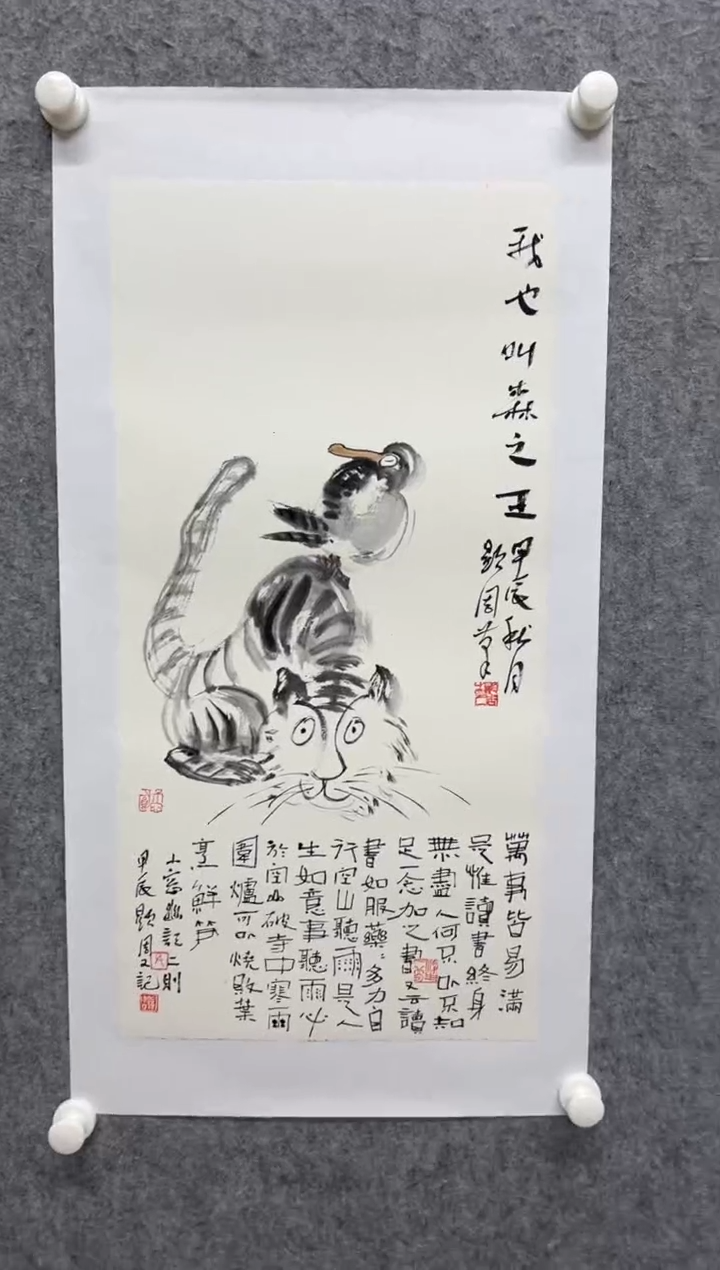 我也叫森之王
甲辰秋月
萬事皆易滿
足惟讀書終身
無盡人何不以不知
足一念加之書又云讀
書如服藥々多力自
行空山聽雨是人
生如意事聽雨必
於空山破寺中寒雨
圍爐可以燒敗葉
烹鮮笋
小窗幽記二則
甲辰 又記